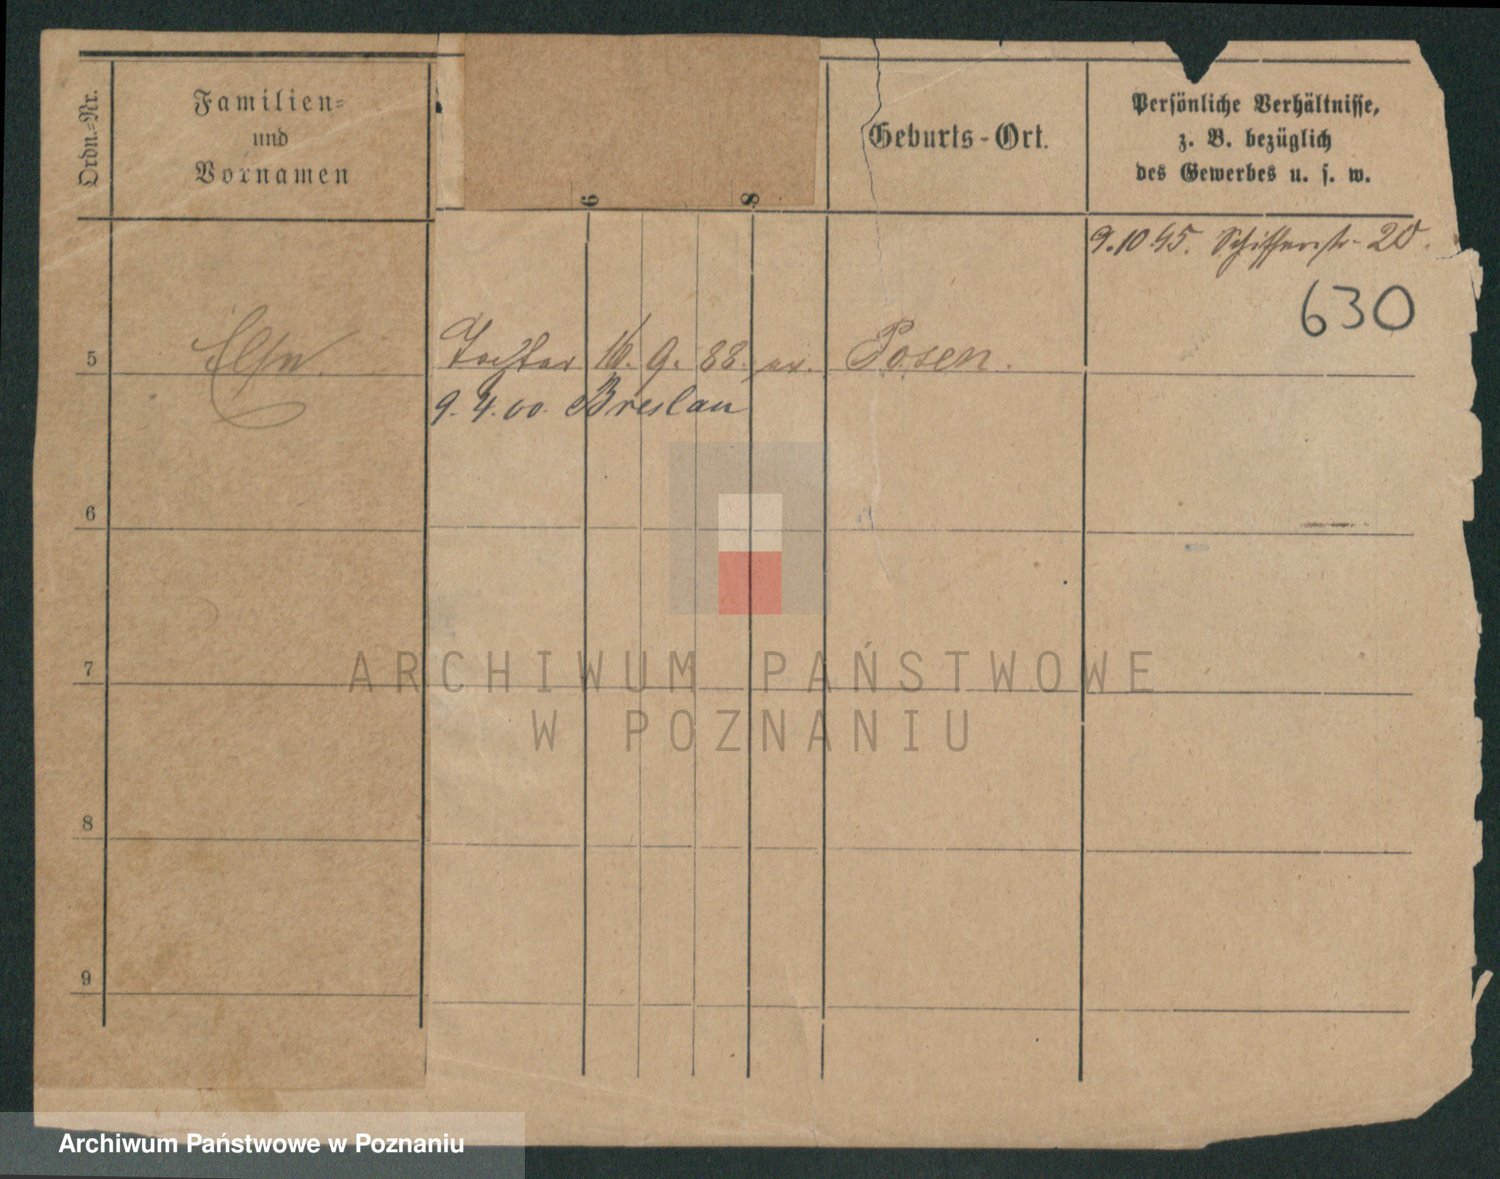 Ordn.-Nr.
Familien-
und
Vornamen
6
8
Geburts-Ort.
Persönliche Verhältnisse,
z. B. bezüglich
des Gewerbes u. s. w.
9.10 95. Schifferstr. 20.
630
5 Else. Tochter 16. 9. 88. ev. Posen.
9. 4. 00. Breslau
6
7
8
9
ARCHIWUM PAŃSTWOWE
W POZNANIU
Archiwum Państwowe w Poznaniu